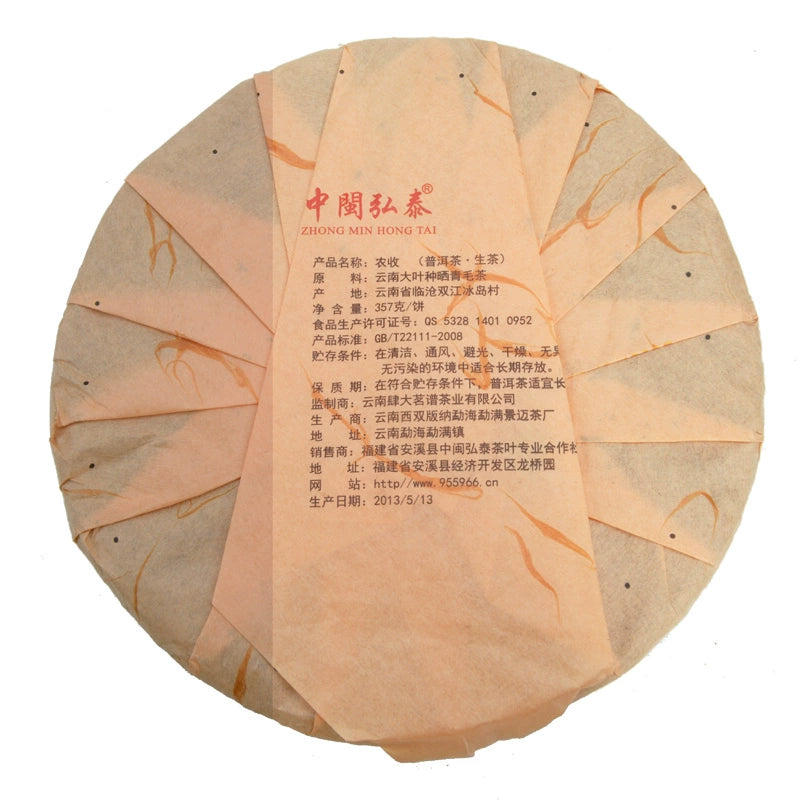 中閩弘泰®
ZHONG MIN HONG TAI
产品名称：农收 （普洱茶·生茶）
原 料：云南大叶种晒青毛茶
产 地：云南省临沧双江冰岛村
净 含 量：357克/饼
食品生产许可证号：QS 5328 1401 0952
产品标准：GB/T22111-2008
贮存条件：在清洁、通风、避光、干燥、无异
无污染的环境中适合长期存放。
保 质 期：在符合贮存条件下，普洱茶适宜长
监制商：云南肆大茗谱茶业有限公司
生 产 商：云南西双版纳勐海勐满景迈茶厂
地 址：云南勐海勐满镇
销售商：福建省安溪县中闽弘泰茶叶专业合作社
地 址：福建省安溪县经济开发区龙桥园
网 站：http//www.955966.cn
生产日期：2013/5/13